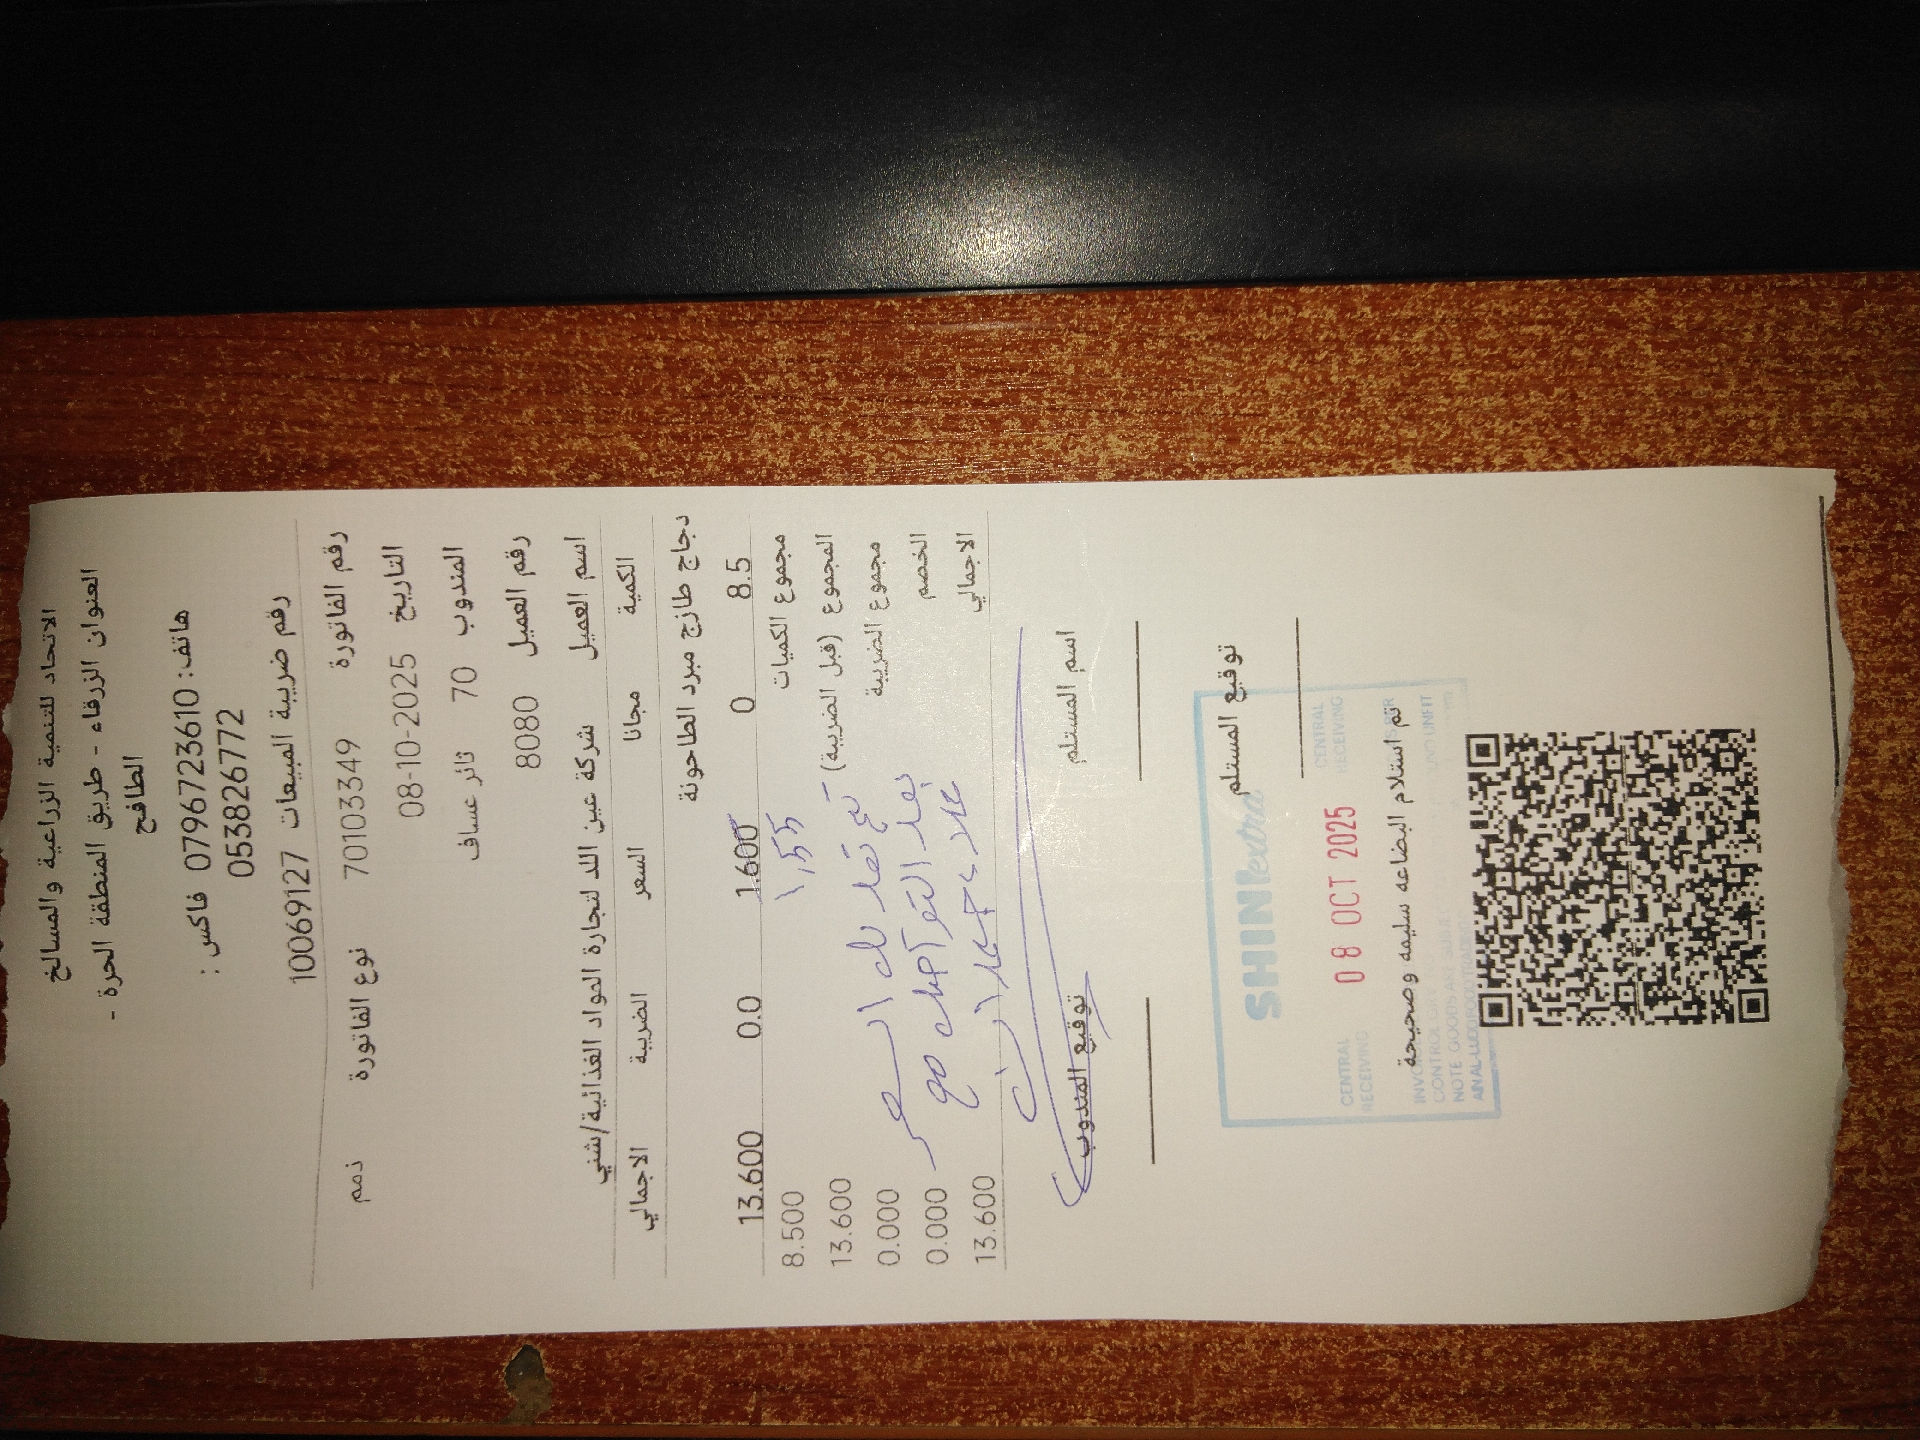 الاتحاد للتنمية الزراعية والمسالخ
العنوان الزرقاء - طريق المنطقة الحرة -
الطافح
هاتف: 0796723610 فاكس :
0538826772
رقم ضريبة المبيعات 10069127
رقم الفاتورة 70103349 نوع الفاتورة ذمم
التاريخ 08-10-2025
المندوب 70 ثائر عساف
رقم العميل 8080
اسم العميل شركة عين اللد لتجارة المواد الغذائية/شني
الكمية مجانا السعر الضريبة الاجمالي
دجاج طازج مبرد الطاحونة
8.5 0 1.600 0.0 13.600
مجموع الكميات 8.500
١,٥٥
المجموع (قبل الضريبة) 13.600
تم تعديل السعر
مجموع الضريبة 0.000
بعد التواصل مع
الخصم 0.000
علاء
الاجمالي 13.600
اسم المستلم توقيع المندوب
توقيع المستلم
SHINI extra
CENTRAL RECEIVING 08 OCT 2025 CENTRAL RECEIVING
تم استلام البضاعه سليمه وصحيحة